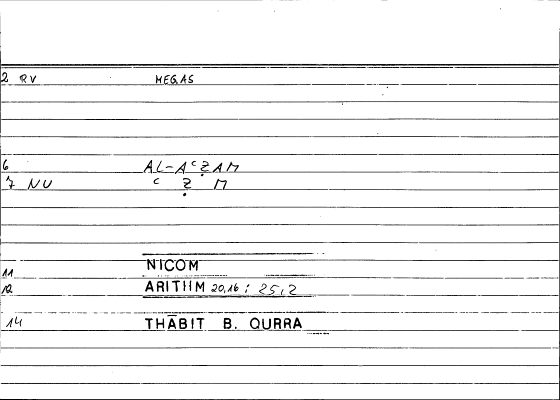 2 RV MEGAS
6 AL-AʿẒAM
7 NU ʿ Ẓ M
11 NICOM
12 ARITHM 20,16 ; 25,2
14 THĀBIT B. QURRA